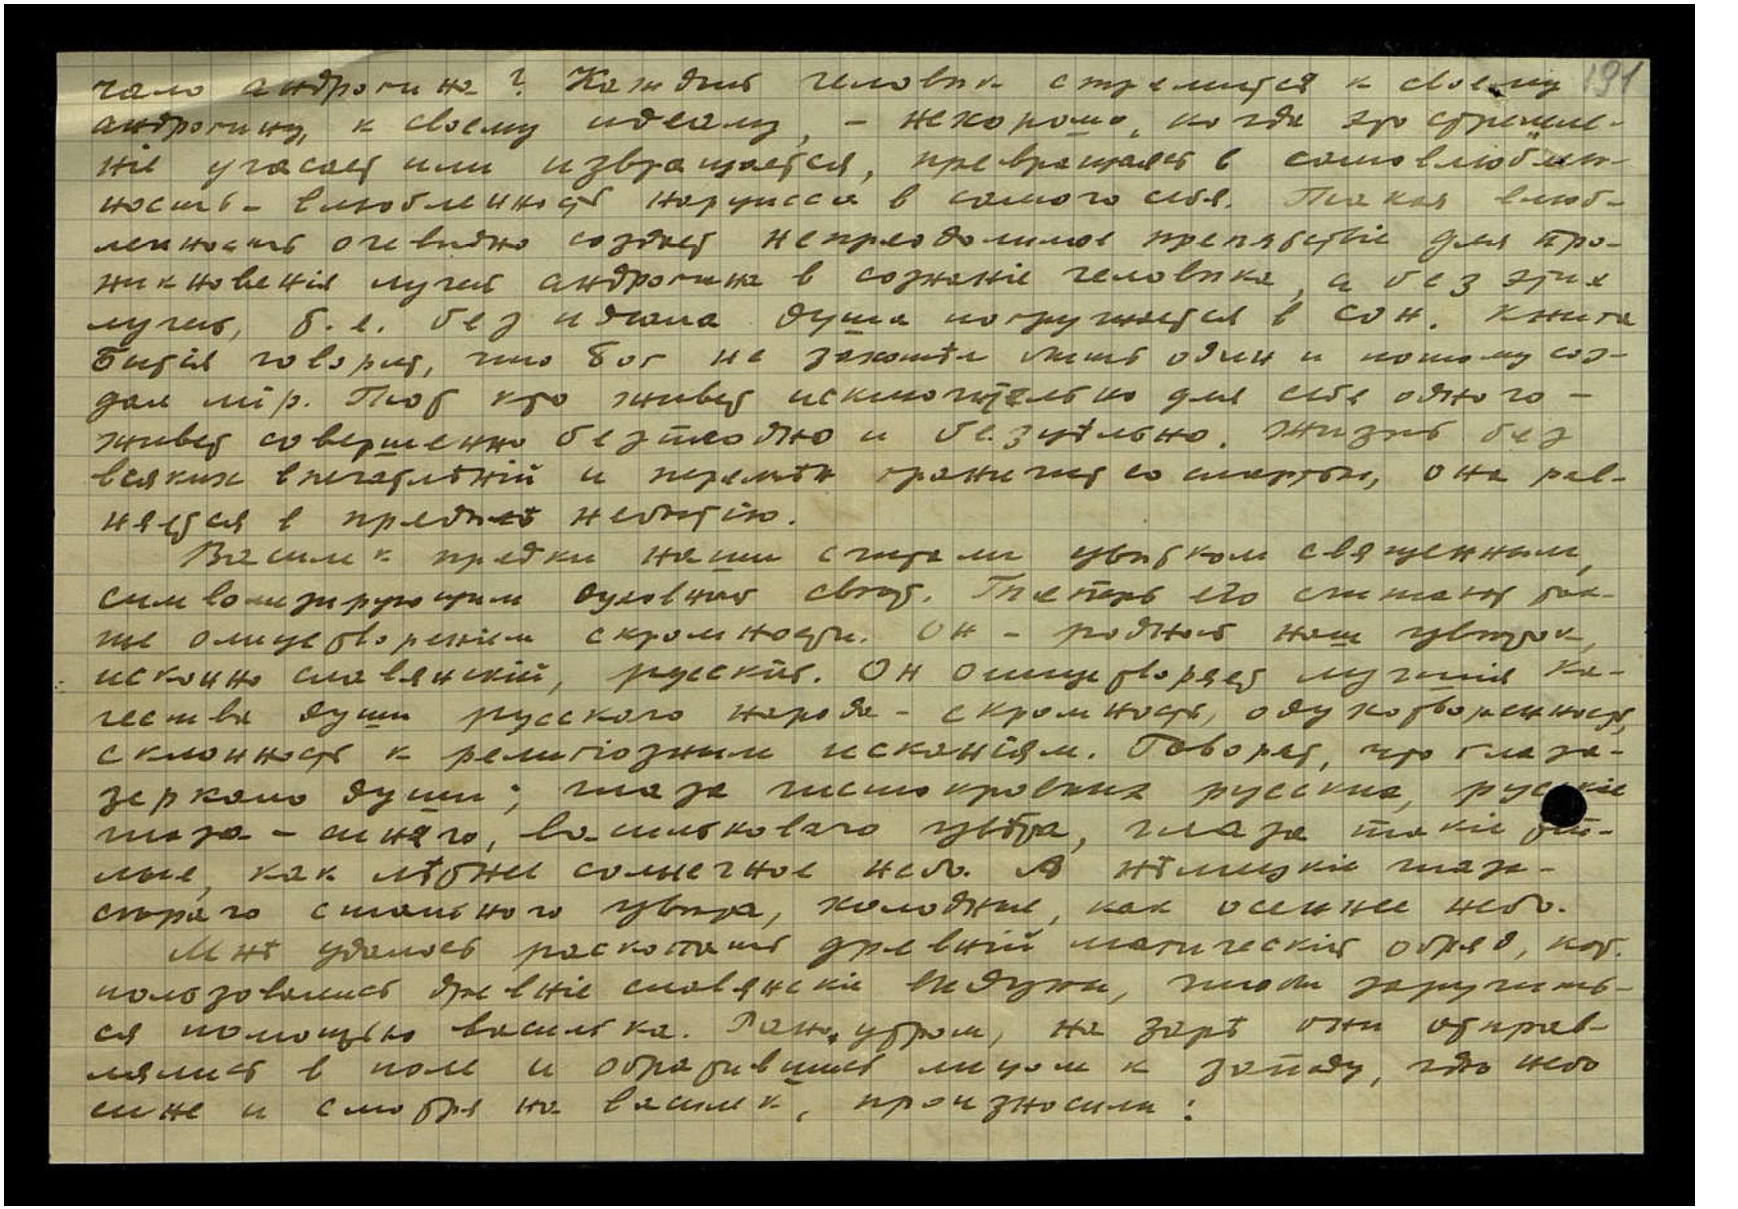 чало андрогина? Каждый человѣк стремится к своему 191
андрогину, к своему идеалу, – нехорошо, когда это стремле-
ніе угасает или извращается, превращаясь в самовлюблен-
ность – влюбленность нарцисса в самого себя. Такая влюб-
ленность очевидно создает непреодолимое препятствіе для про-
никновенія лучей андрогина в сознаніе человѣка, а без этих
лучей, т.е. без идеала душа погружается в сон. Книга
Бытія говорит, что Бог не захотѣл быть один и потому соз-
дал мір. Тот кто живет исключительно для себя одного –
живет совершенно безплодно и безцѣльно. Жизнь без
всяких впечатлѣній и перемѣн граничит со смертью, она рав-
няется в предѣлѣ небытію.
Василек предки наши считали цвѣтком священным,
символизирующим духовный свѣт. Теперь его считают так-
же олицетвореніем скромности. Он – родной наш цвѣток,
исконно славянскій, русскій. Он олицетворяет лучшія ка-
чества души русского народа – скромность, одухотворенность,
склонность к религіозным исканіям. Говорят, что глаза –
зеркало души; глаза чистокровных русских, русскіе
глаза – синяго, василькового цвѣта, глаза такіе теп-
лые, как лѣтнее солнечное небо. А нѣмецкіе глаза –
сѣраго стального цвѣта, холодные, как осеннее небо.
Мнѣ удалось раскопать древній магическій обряд, кот.
пользовались древніе славянскіе вѣдуны, чтобы заручить-
ся помощью василька. Рано утром, на зарѣ они отправ-
лялись в поле и обратившись лицом к западу, гдѣ небо
сине и смотря на василек, произносили: